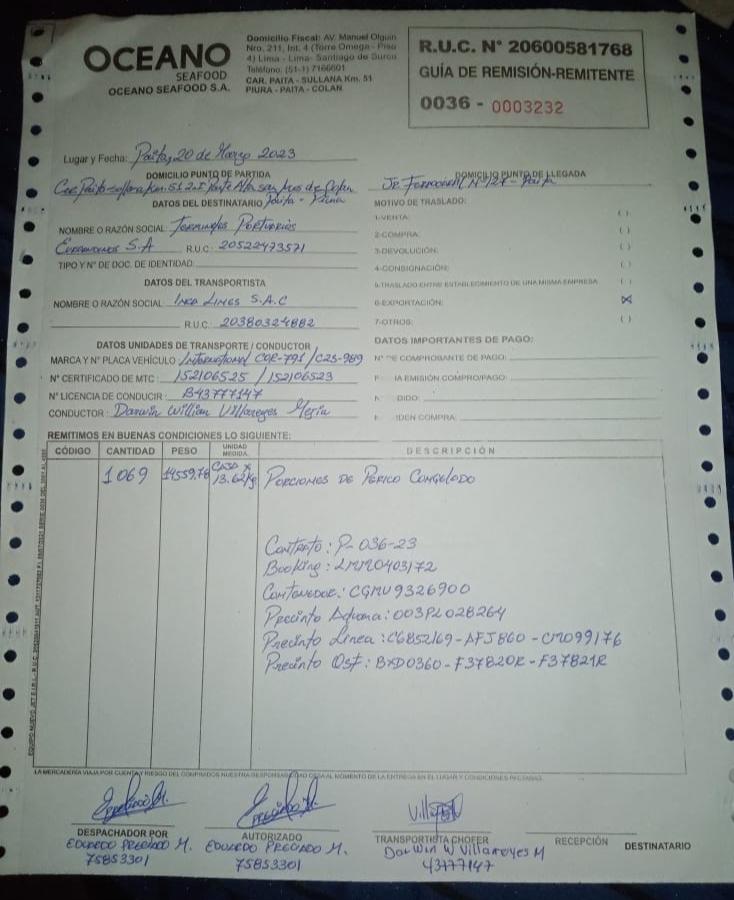 OCEANO
SEAFOOD
OCEANO SEAFOOD S.A.
Domicilio Fiscal: AV. Manuel Olguin
Nro. 211, Int. 4 (Torre Omega - Piso
4) Lima - Lima- Santiago de Surco
Teléfono: (51-1) 7166601
CAR. PAITA - SULLANA Km. 51
PIURA - PAITA - COLAN
R.U.C. N° 20600581768
GUÍA DE REMISIÓN-REMITENTE
0036 - 0003232
Lugar y Fecha: Paita, 20 de Marzo 2023
DOMICILIO PUNTO DE PARTIDA
DOMICILIO PUNTO DE LLEGADA
DATOS DEL DESTINATARIO Paita - Piura
NOMBRE O RAZÓN SOCIAL: Terminales Portuarios
Euroandinos S.A R.U.C: 20522473571
TIPO Y N° DE DOC. DE IDENTIDAD:
MOTIVO DE TRASLADO:
1-VENTA: ( )
2-COMPRA: ( )
3-DEVOLUCIÓN: ( )
4-CONSIGNACIÓN: ( )
5-TRASLADO ENTRE ESTABLECIMIENTO DE UNA MISMA EMPRESA ( )
6-EXPORTACIÓN: (X)
7-OTROS: ( )
DATOS DEL TRANSPORTISTA
NOMBRE O RAZÓN SOCIAL: Inca Lines S.A.C
R.U.C: 20380324882
DATOS UNIDADES DE TRANSPORTE / CONDUCTOR
MARCA Y N° PLACA VEHÍCULO: International CQR-791 / C2S-989
N° CERTIFICADO DE MTC: 152106525 / 152106523
N° LICENCIA DE CONDUCIR: B43777147
CONDUCTOR: Darwin William Villarreyes Mejia
DATOS IMPORTANTES DE PAGO:
N° DE COMPROBANTE DE PAGO:
IDEN COMPRA:
REMITIMOS EN BUENAS CONDICIONES LO SIGUIENTE:
CÓDIGO CANTIDAD PESO UNIDAD MEDIDA DESCRIPCIÓN
1069 14559.78 Caja x 13.62kg Porciones de Perico Congelado
Contrato: P-036-23
Booking: LMM0403172
Contenedor: CGMU9326900
Precinto Aduana: 003PL028264
Precinto Linea: C6852169-AFJ860-CM099176
Precinto Osf: BXD0360-F37820R-F37821R
DESPACHADOR POR
Eduardo Preciado M.
75853301
AUTORIZADO
Eduardo Preciado M.
75853301
TRANSPORTISTA CHOFER
Darwin W Villarreyes M
43777147
RECEPCIÓN
DESTINATARIO